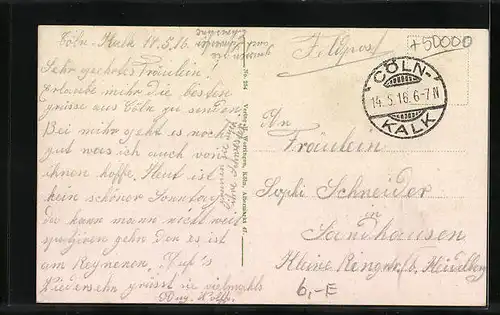 Cöln-Kalk 14.5.16.
Sehr geehrtes Fräulein!
Erlaube mihr die besten
grüsse aus Cöln zu senden.
Bei mihr geht es noch
gut was ich auch von
ihnen hoffe. Heut ist
kein schöner Sonntag
da kann mann nicht weit
spaziren gehn den es ist
am Reynenen. Auf's
Wiedersehn grüsst sie vielmahls
Aug.
grüssen sie
auch
Schwestern
No. 254
Feldpost
+50000
CÖLN-
14.5.16.6-7N
KALK
An
Fräulein
Sophi Schneider
in
Sandhausen
Kleine Ringstr. b. Heidelberg
6,-E